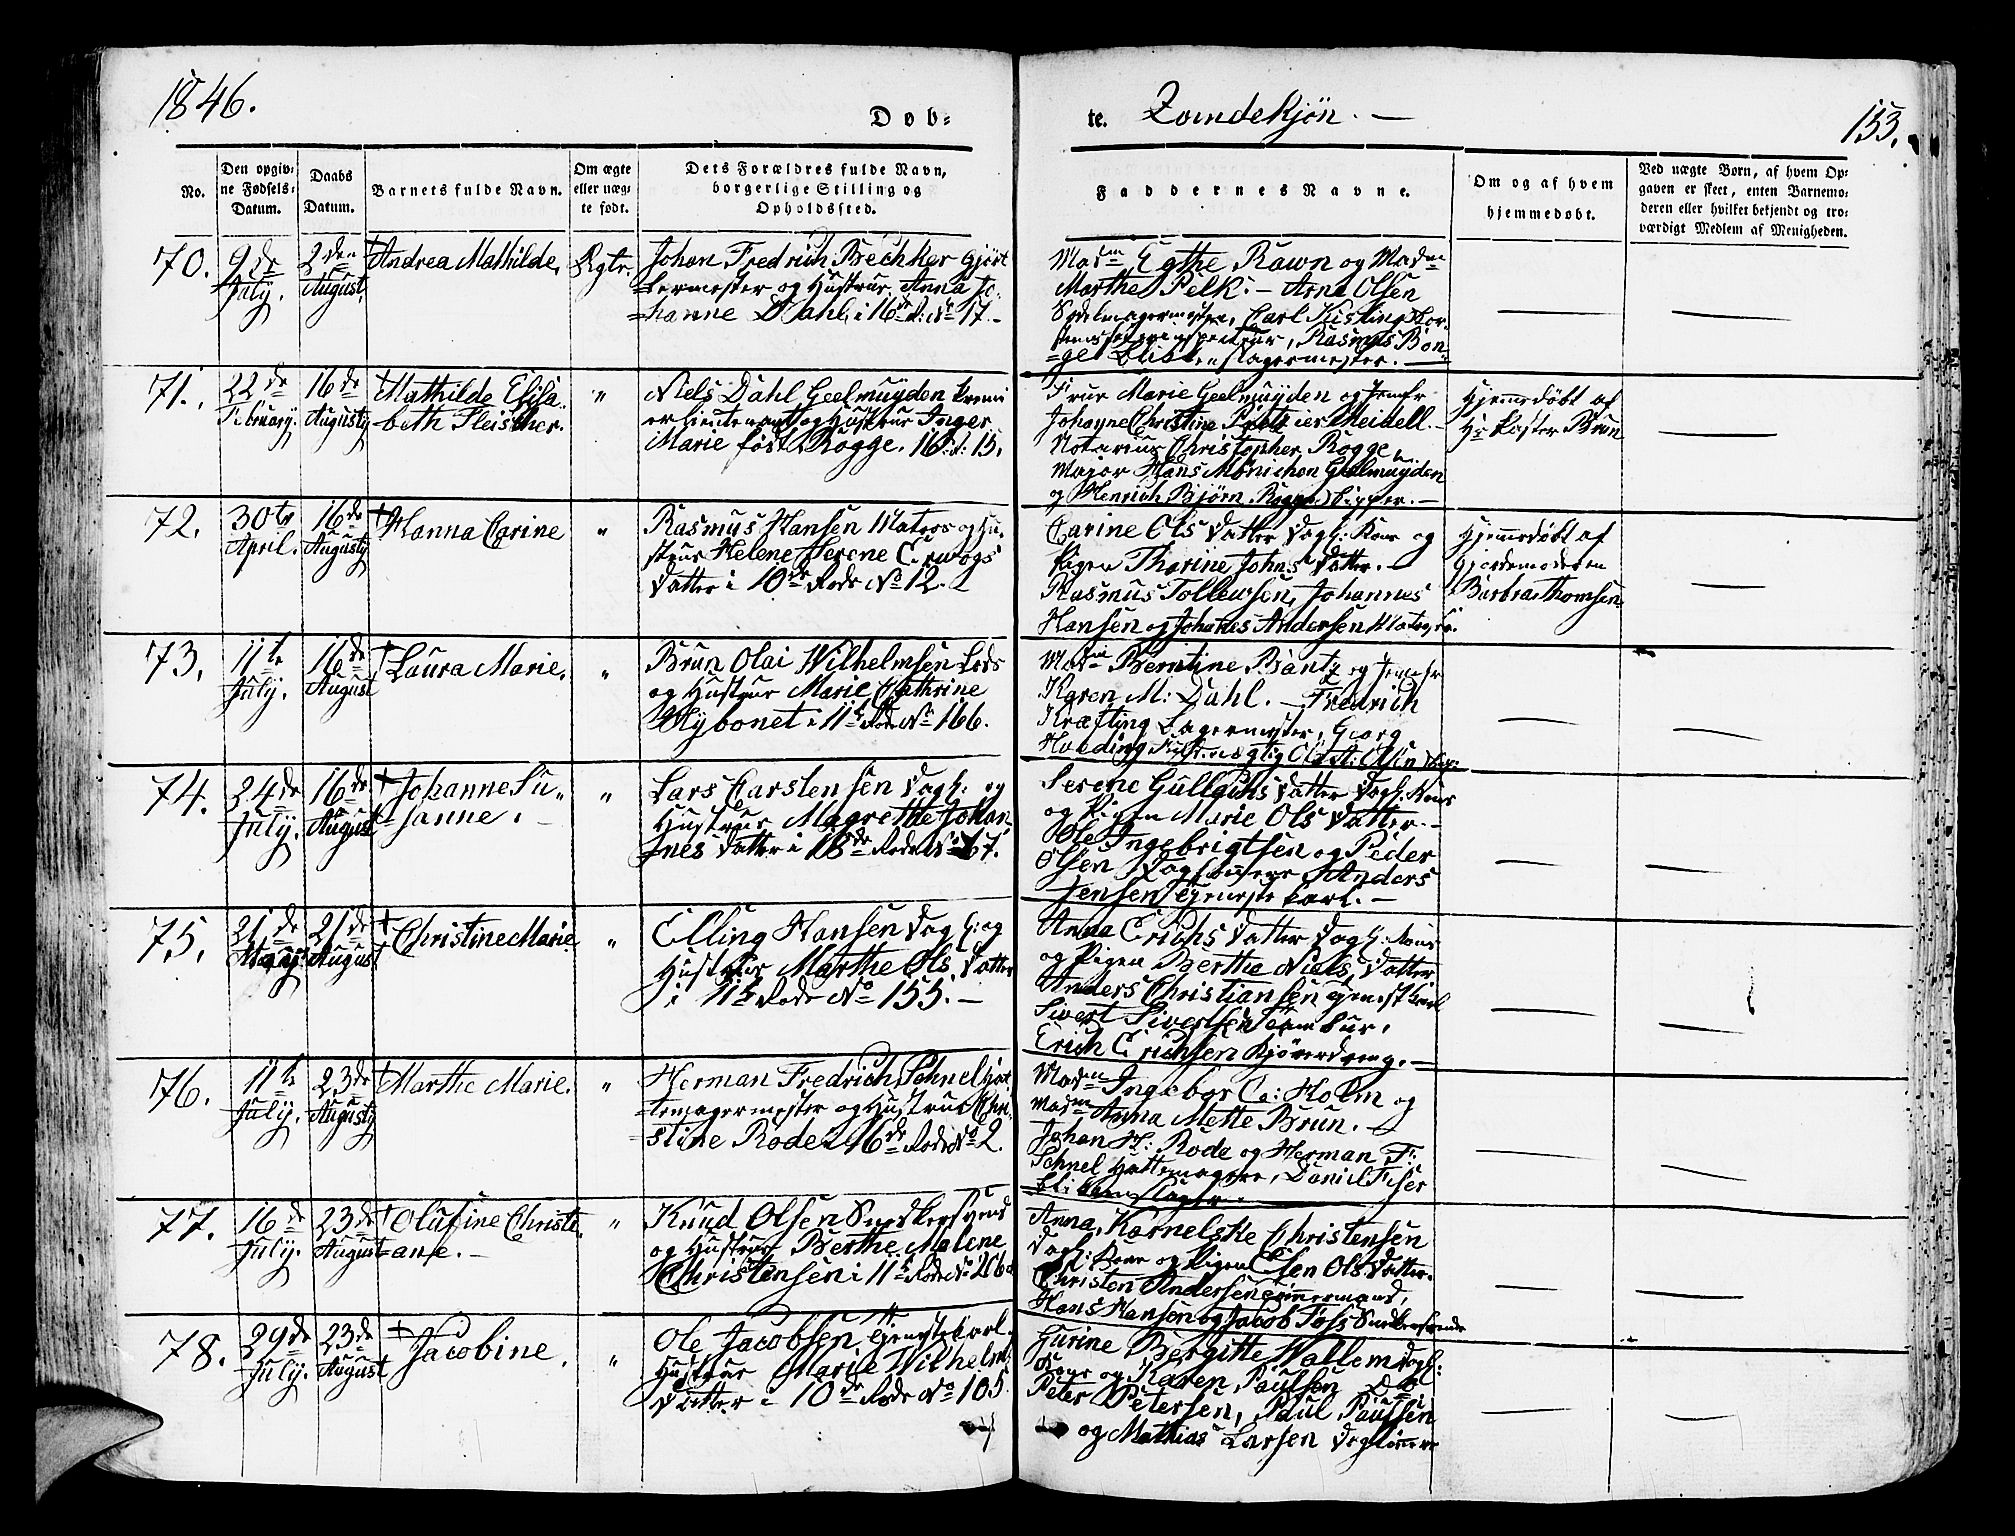 1846.
Døb-
te. Qvindekjøn. —
153.
No.
Den opgiv-
ne Fødsels-
Datum.
Daabs
Datum.
Barnets fulde Navn.
Om ægte
eller uæg-
te født.
Dets Forældres fulde Navn,
borgerlige Stilling og
Opholdssted.
Faddernes Navne.
Om og af hvem
hjemmedøbt.
Ved uægte Børn, af hvem Op-
gaven er skeet, enten Barnemo-
deren eller hvilket bekjendt og tro-
værdigt Medlem af Menigheden.
70. 9de July. 2den August. Andrea Mathilde. Ægte.
Johan Fredrich Bechker Gjørt-
lermester og Hustrue Anna Jo-
hanne Dahl, i 16de R: No 17.
Madm Egthe Rawn og Madm
Marthe Pelk. — Arna Olsen
Sadelmagermester, Carl Kisling
Rasmus Bon-
ge Blikkenslagermester. —
71. 22de February. 16de Augusty Mathilde Elisa-
beth Fleischer. "
Niels Dahl Geelmuyden premi-
er lieutenant og Hustrue Inger
Marie født Rogge. 16 R: 15.
Frue Marie Geelmuyden og Jomfr
Johanne Christine Meidell. —
Notarius Christopher Rogge
Major Hans Mønichen Geelmuyden
og Henrich Bjørn Rogge Skipper. —
Hjemedøbt af
Hr Koster Brun
72. 30te April. 16de Augusty Hanna Carine "
Rasmus Hansen Matros og Hu-
strue Helene Serene
Datter i 10de Rode No 12.
Carine Ols Datter Dagl: Kone og
Pigen Thorine Johns Datter.
Rasmus Tollewsen, Johannes
Hansen og Johanes Andersen Matroser.
Hjemedøbt af
Gjordemoderen
Barbra Thomsen
73. 11te July. 16de August Laura Marie. "
Brun Olai Wilhelmsen Lods
og Hustrue Marie Cathrine
Nybonet i 11te Rode No 166.
Madm Berntine Bantz og Jomfr
Karen M: Dahl. — Fredrich
Kræfting Lagermester, Georg
74. 24de July. 16de August Johanne Su-
sanne. — "
Lars Karstensen Dagl: og
Hustrue Magrethe Johan-
nes Datter i 18de Rode No 67.
Serene Gullachs Datter Dagl: Kone
og Pigen Marie Ols Datter. —
Ole Ingebrigtsen og Peder
Olsen Daglønnere Anders
Jensen tjeneste karl. —
75. 21de May. 21de August Christine Marie "
Elling Hansen Dagl: og
Hustrue Marthe Ols Datter
i 11te Rode No 155. —
Anna Erichs Datter Dagl: Kone
og Pigen Berthe Niels Datter
Anders Christiansen tjenest karl
Sivert Sivertsen Tambur.
Erich Erichsen Kjørerdreng. —
76. 11te July. 23de Augusty Marthe Marie. "
Herman Fredrich Schnel Hat-
temagermester og Hustrue Chri-
stine Rode i 16de Rode No 2.
Madm Ingebor C: Holm og
Madm Anna Mette Brun.
Johan H: Rode og Herman F:
Schnel Hattemagere, Daniel Fiser
Blikkenslager.
77. 16de July. 23de August Olufine Christi-
ane. — "
Knud Olsen Snedkersvend
og Hustrue Berthe Malene
Christensen i 11te Rode No 266
Anna Kornelske Christensen
Dagl: Kone og Pigen Elsen Ols Datter.
Christen Andersen Tømmermand,
Hans Hansen og Jacob Foss Snedkersvende
78. 29de July. 23de August Jacobine. "
Ole Jacobsen tjenestekarl.
Hustrue Marie Wilhelm
Datter i 10de Rode No 105.
Gurine Bergitte Wallem Dagl:
Kone og Karen Paulsen Do
Peter Petersen, Paul Paulsen
og Mathias Larsen Daglønnere